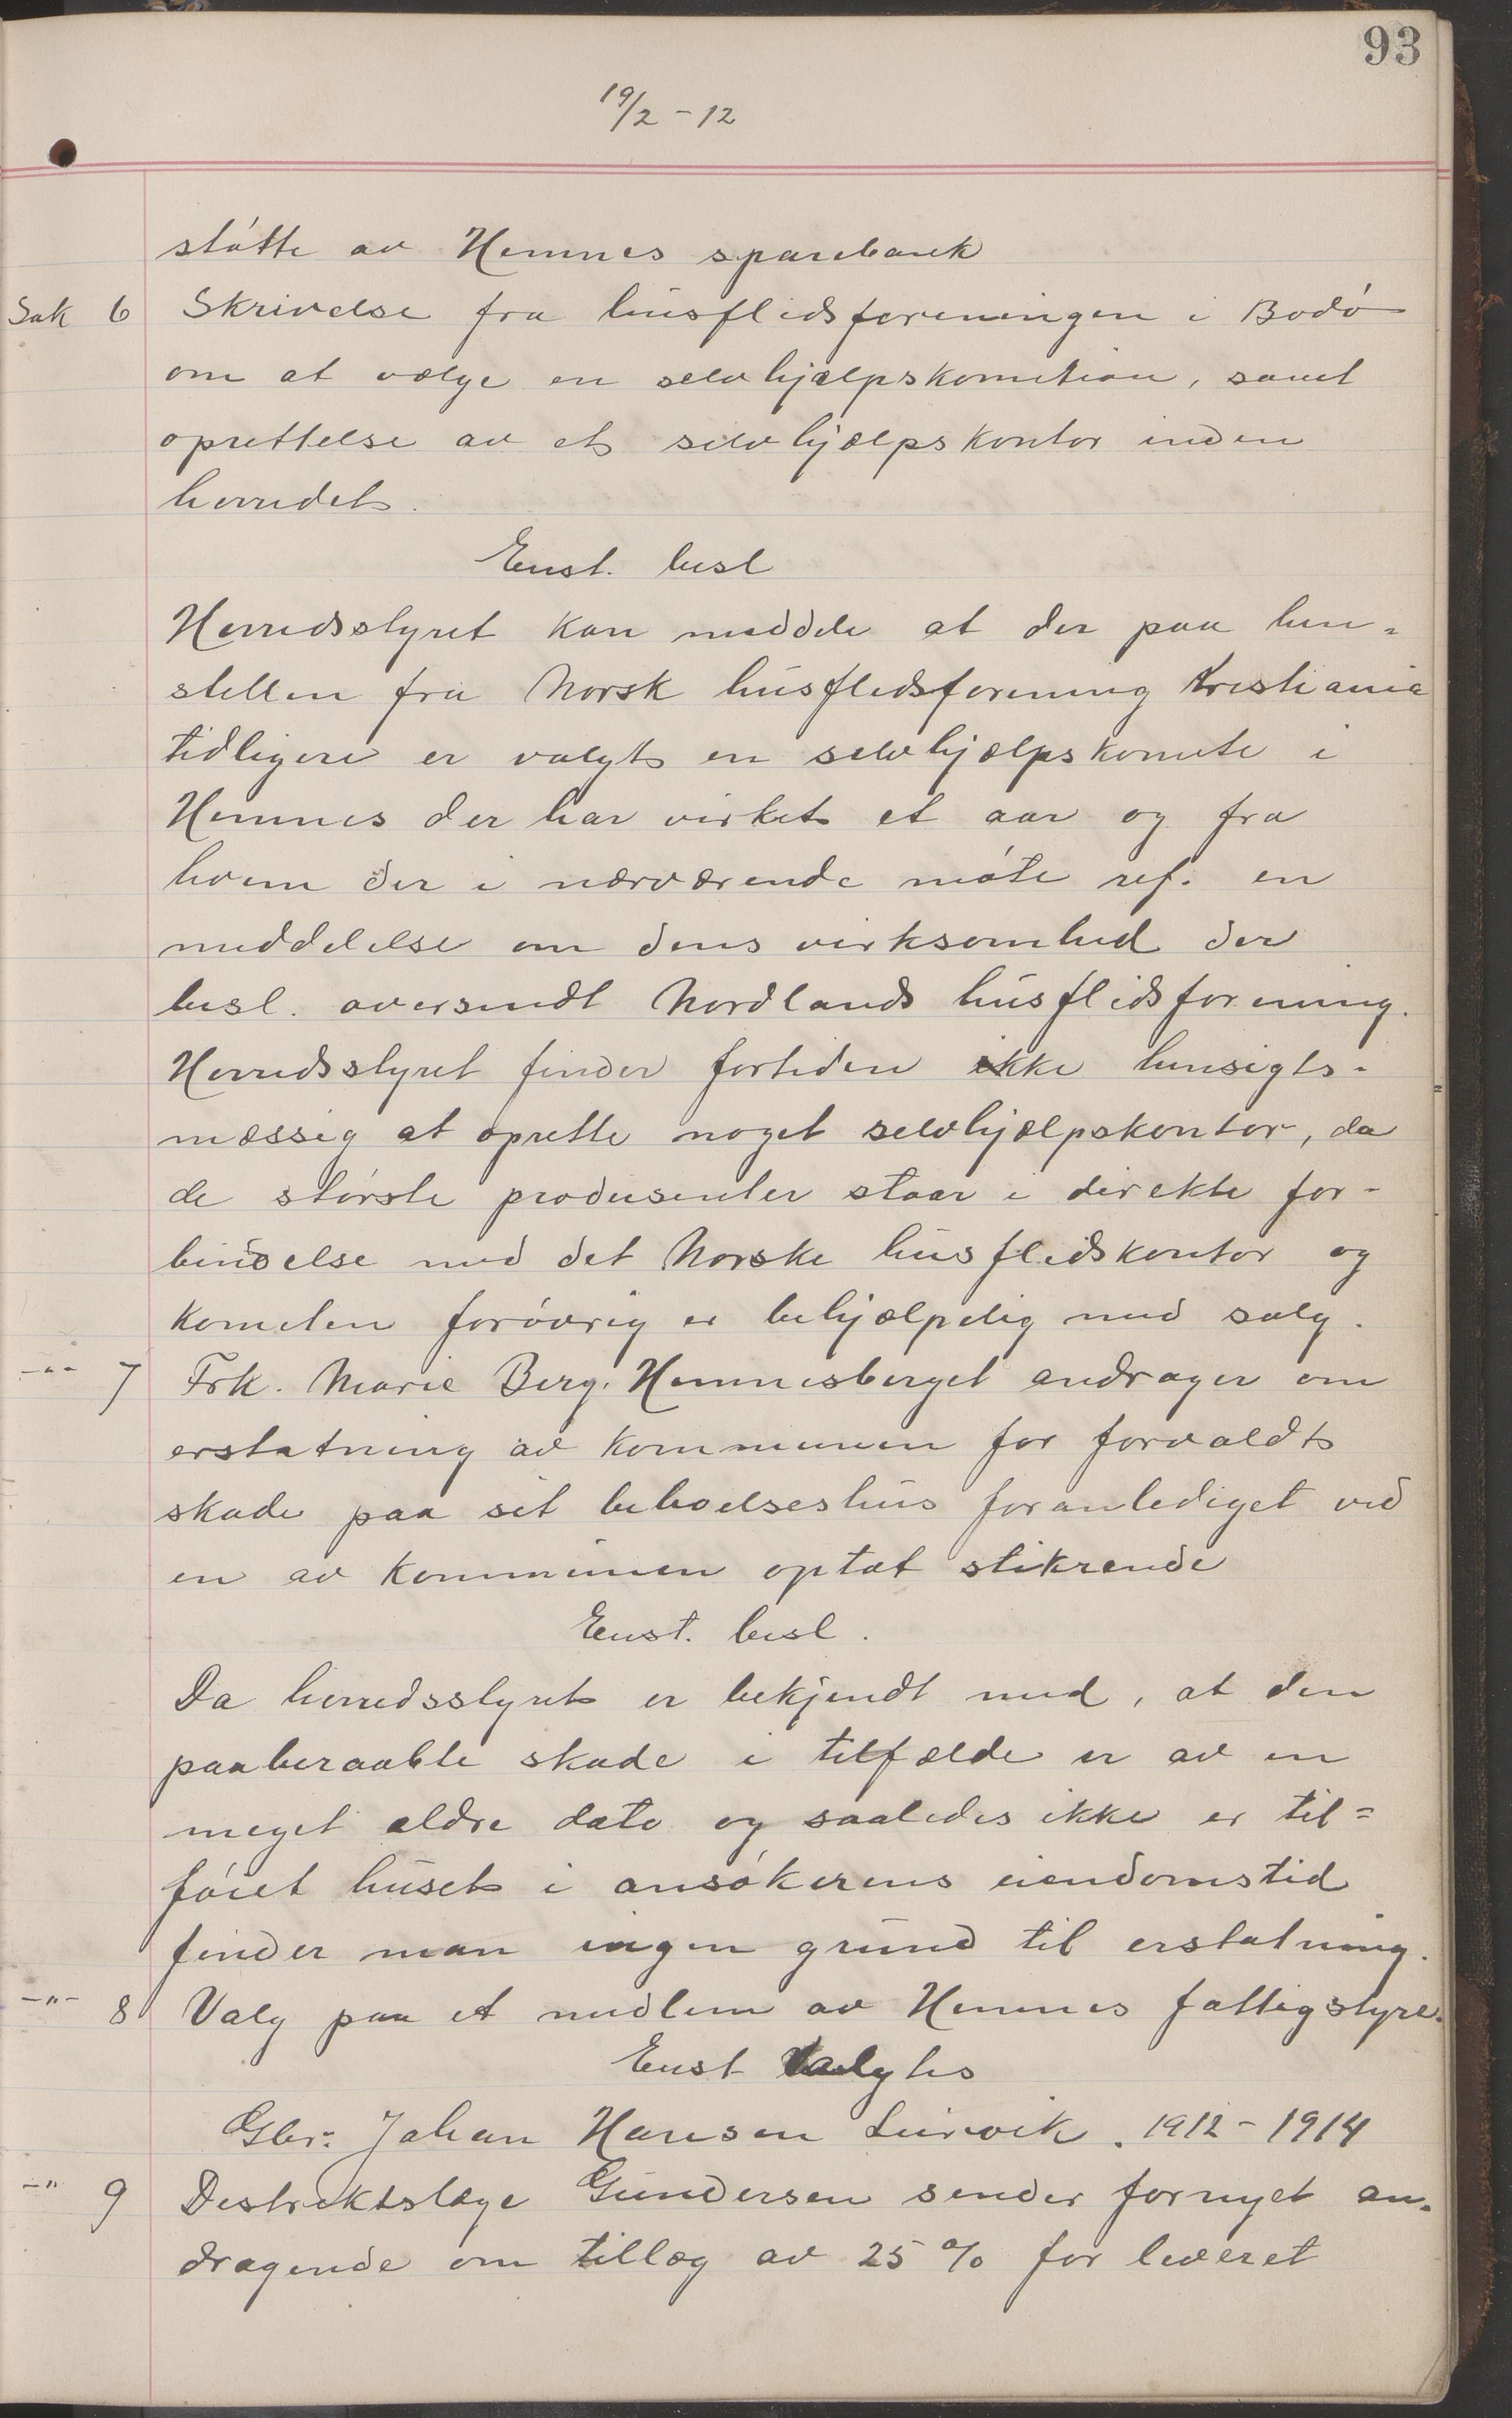 93
19/2 - 12
støtte av Hemnes sparebank
Sak 6 Skrivelse fra husflidsforeningen i Bodø
om at vælge en selvhjælpskomition, samt
oprettelse av et selvhjælpskontor inden
herredet.
Enst. besl
Herredsstyret kan meddele at der paa hen-
stillen fra Norsk husflidsforening Kristiania
tidligere er valgt en selvhjælpskomite i
Hemnes der har virket et aar og fra
hvem der i nærværende møte ref. en
meddelelse om dens virksomhed der
besl. oversendt Nordlands husflidsforening.
Herredsstyret finder fortiden ikke hensigts-
mæssig at oprette noget selvhjælpskontor, da
de største produsenter staar i direkte for-
bindelse med det Norske husflidskontor og
komiteen forøvrig er behjælpelig med salg.
-"- 7 Frk. Marie Berg. Hemnesberget andrager om
erstatning av kommunen for forvaldt
skade paa sit beboelseshus foranlediget ved
en av kommunen optat stikrende
Enst. besl.
Da herredsstyret er bekjendt med, at den
paaberaabte skade i tilfælde er av en
meget ældre dato og saaledes ikke er til=
føiet huset i ansøkerens eiendomstid
finder man ingen grund til erstatning.
-"- 8 Valg paa et medlem av Hemnes fattigstyre.
Enst Valgtes
Gbr: Johan Hansen Leirvik. 1912 - 1914
-" 9 Distriktslæge Gundersen sender fornyet an-
dragende om tillæg av 25 % for leveret